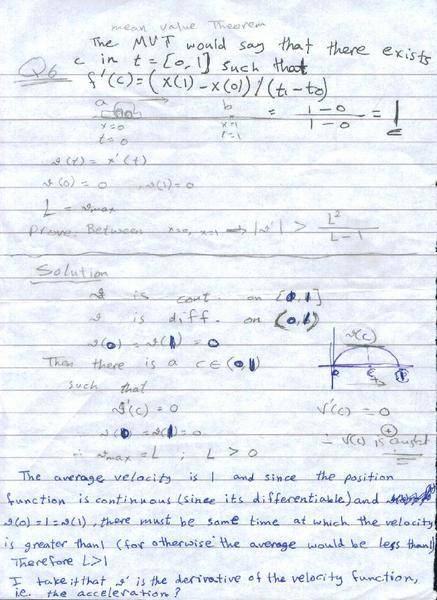 mean value Theorem
The MVT would say that there exists
Q6 c in t = [0, 1] such that
f'(c) = (x(1) - x(0)) / (t₁ - t₀)
a b
x=0 x=1
t=0 t=1
= (1-0)/(1-0) = 1
v(t) = x'(t)
v(0) = 0 , v(1) = 0
L = vmax
Prove, Between x=0, x=1 ⟹ |v'| > L²/(L-1)
Solution
v is cont. on [0,1]
v is diff. on (0,1)
v(0) = v(1) = 0
v(c)
Then there is a c ∈ (0,1)
such that
v'(c) = 0
V'(c) = 0
v(0) = v(1) = 0
∴ v(c) is
∴ vmax = L ; L > 0
The average velocity is 1 and since the position
function is continuous (since its differentiable) and
v(0)=1=v(1), there must be some time at which the velocity
is greater than 1 (for otherwise the average would be less than 1)
Therefore L>1
I take it that v' is the derivative of the velocity function,
i.e. the acceleration?